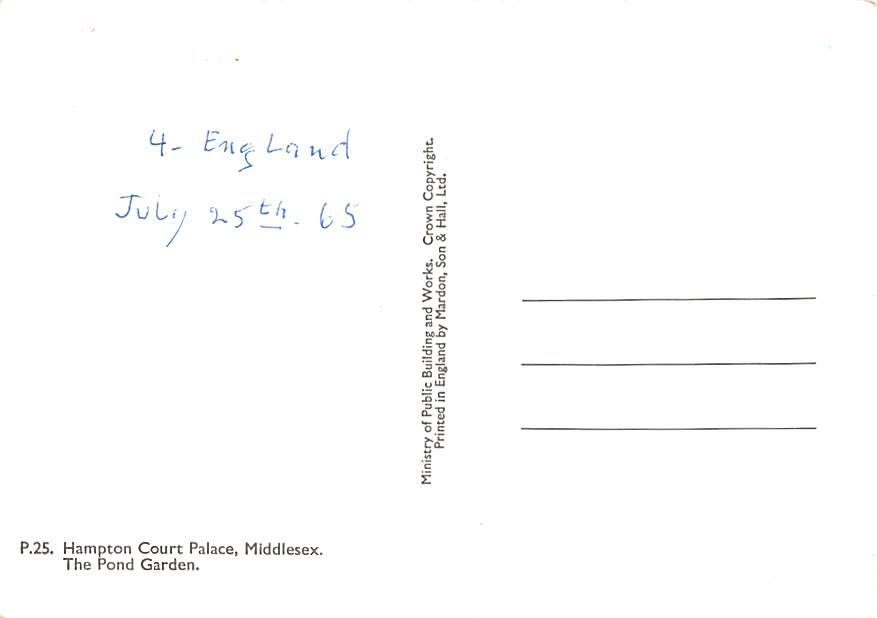 4- England
July 25th. 65
Ministry of Public Building and Works. Crown Copyright.
Printed in England by Mardon, Son & Hall, Ltd.
P.25. Hampton Court Palace, Middlesex.
The Pond Garden.